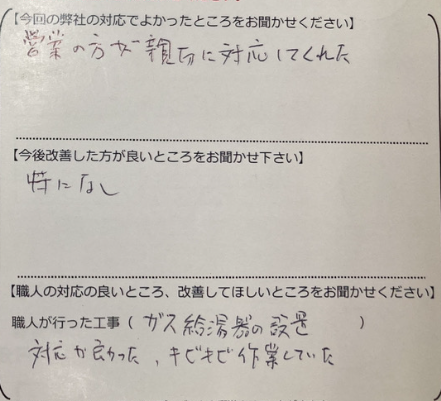 【今回の弊社の対応でよかったところをお聞かせください】
営業の方が親切に対応してくれた
【今後改善した方が良いところをお聞かせ下さい】
特になし
【職人の対応の良いところ、改善してほしいところをお聞かせください】
職人が行った工事（ ガス給湯器の設置 ）
対応が良かった、キビキビ作業していた